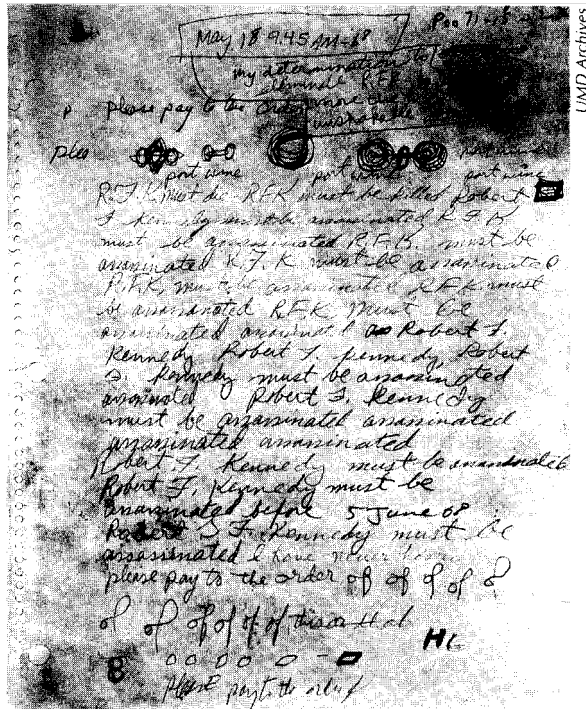 May 18 9.45 AM-68
my determination to
eliminate R.F.K.
please pay to the order
unshakable
port wine
port wine
port wine
R.F.K must die R.F.K must be killed Robert
F. Kennedy must be assassinated R.F.K
must be assassinated R.F.K. must be
assassinated R.F.K must be assassinated
R.F.K. must be assassinated R.F.K must
be assassinated R.F.K must be
assassinated assassinated Robert F.
Kennedy Robert F. Kennedy Robert
F. Kennedy must be assassinated
assassinated Robert F. Kennedy
must be assassinated assassinated
assassinated assassinated
Robert F. Kennedy must be assassinated
Robert F. Kennedy must be
assassinated before 5 June 68
Robert F. Kennedy must be
assassinated I have never
please pay to the order of of of of
of of of of of of this or that
please pay to the order of
UMD Archives